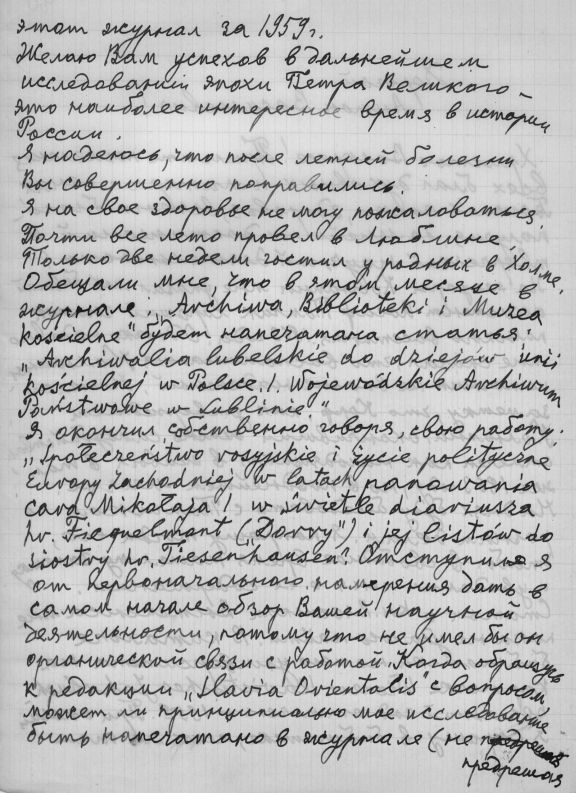 этот журнал за 1959 г.
Желаю Вам успехов в дальнейшем
исследовании эпохи Петра Великого –
это наиболее интересное время в истории
России.
Я надеюсь, что после летней болезни
Вы совершенно поправились.
Я на свое здоровье не могу пожаловаться.
Почти все лето провел в Люблине,
Только две недели гостил у родных в Холме.
Обещали мне, что в этом месяце в
журнале: „Archiwa, Biblioteki i Muzea
kościelne" будет напечатана статья:
„Archiwalia lubelskie do dziejów unii
kościelnej w Polsce. I. Wojewódzkie Archiwum
Państwowe w Lublinie."
Я окончил, собственно говоря, свою работу:
„Społeczeństwo rosyjskie i życie polityczne
Europy Zachodniej w latach panowania
cara Mikołaja I w świetle diariusza
hr. Ficquelmont („Dorry") i jej listów do
siostry hr. Tiesenhausen". Отступил я
от первоначального намерения дать в
самом начале обзор Вашей научной
деятельности, потому что не имел бы он
органической связи с работой. Когда обращусь
к редакции „Slavia Orientalis" с вопросом,
может ли принципиально мое исследование
быть напечатано в журнале (не
предрешая